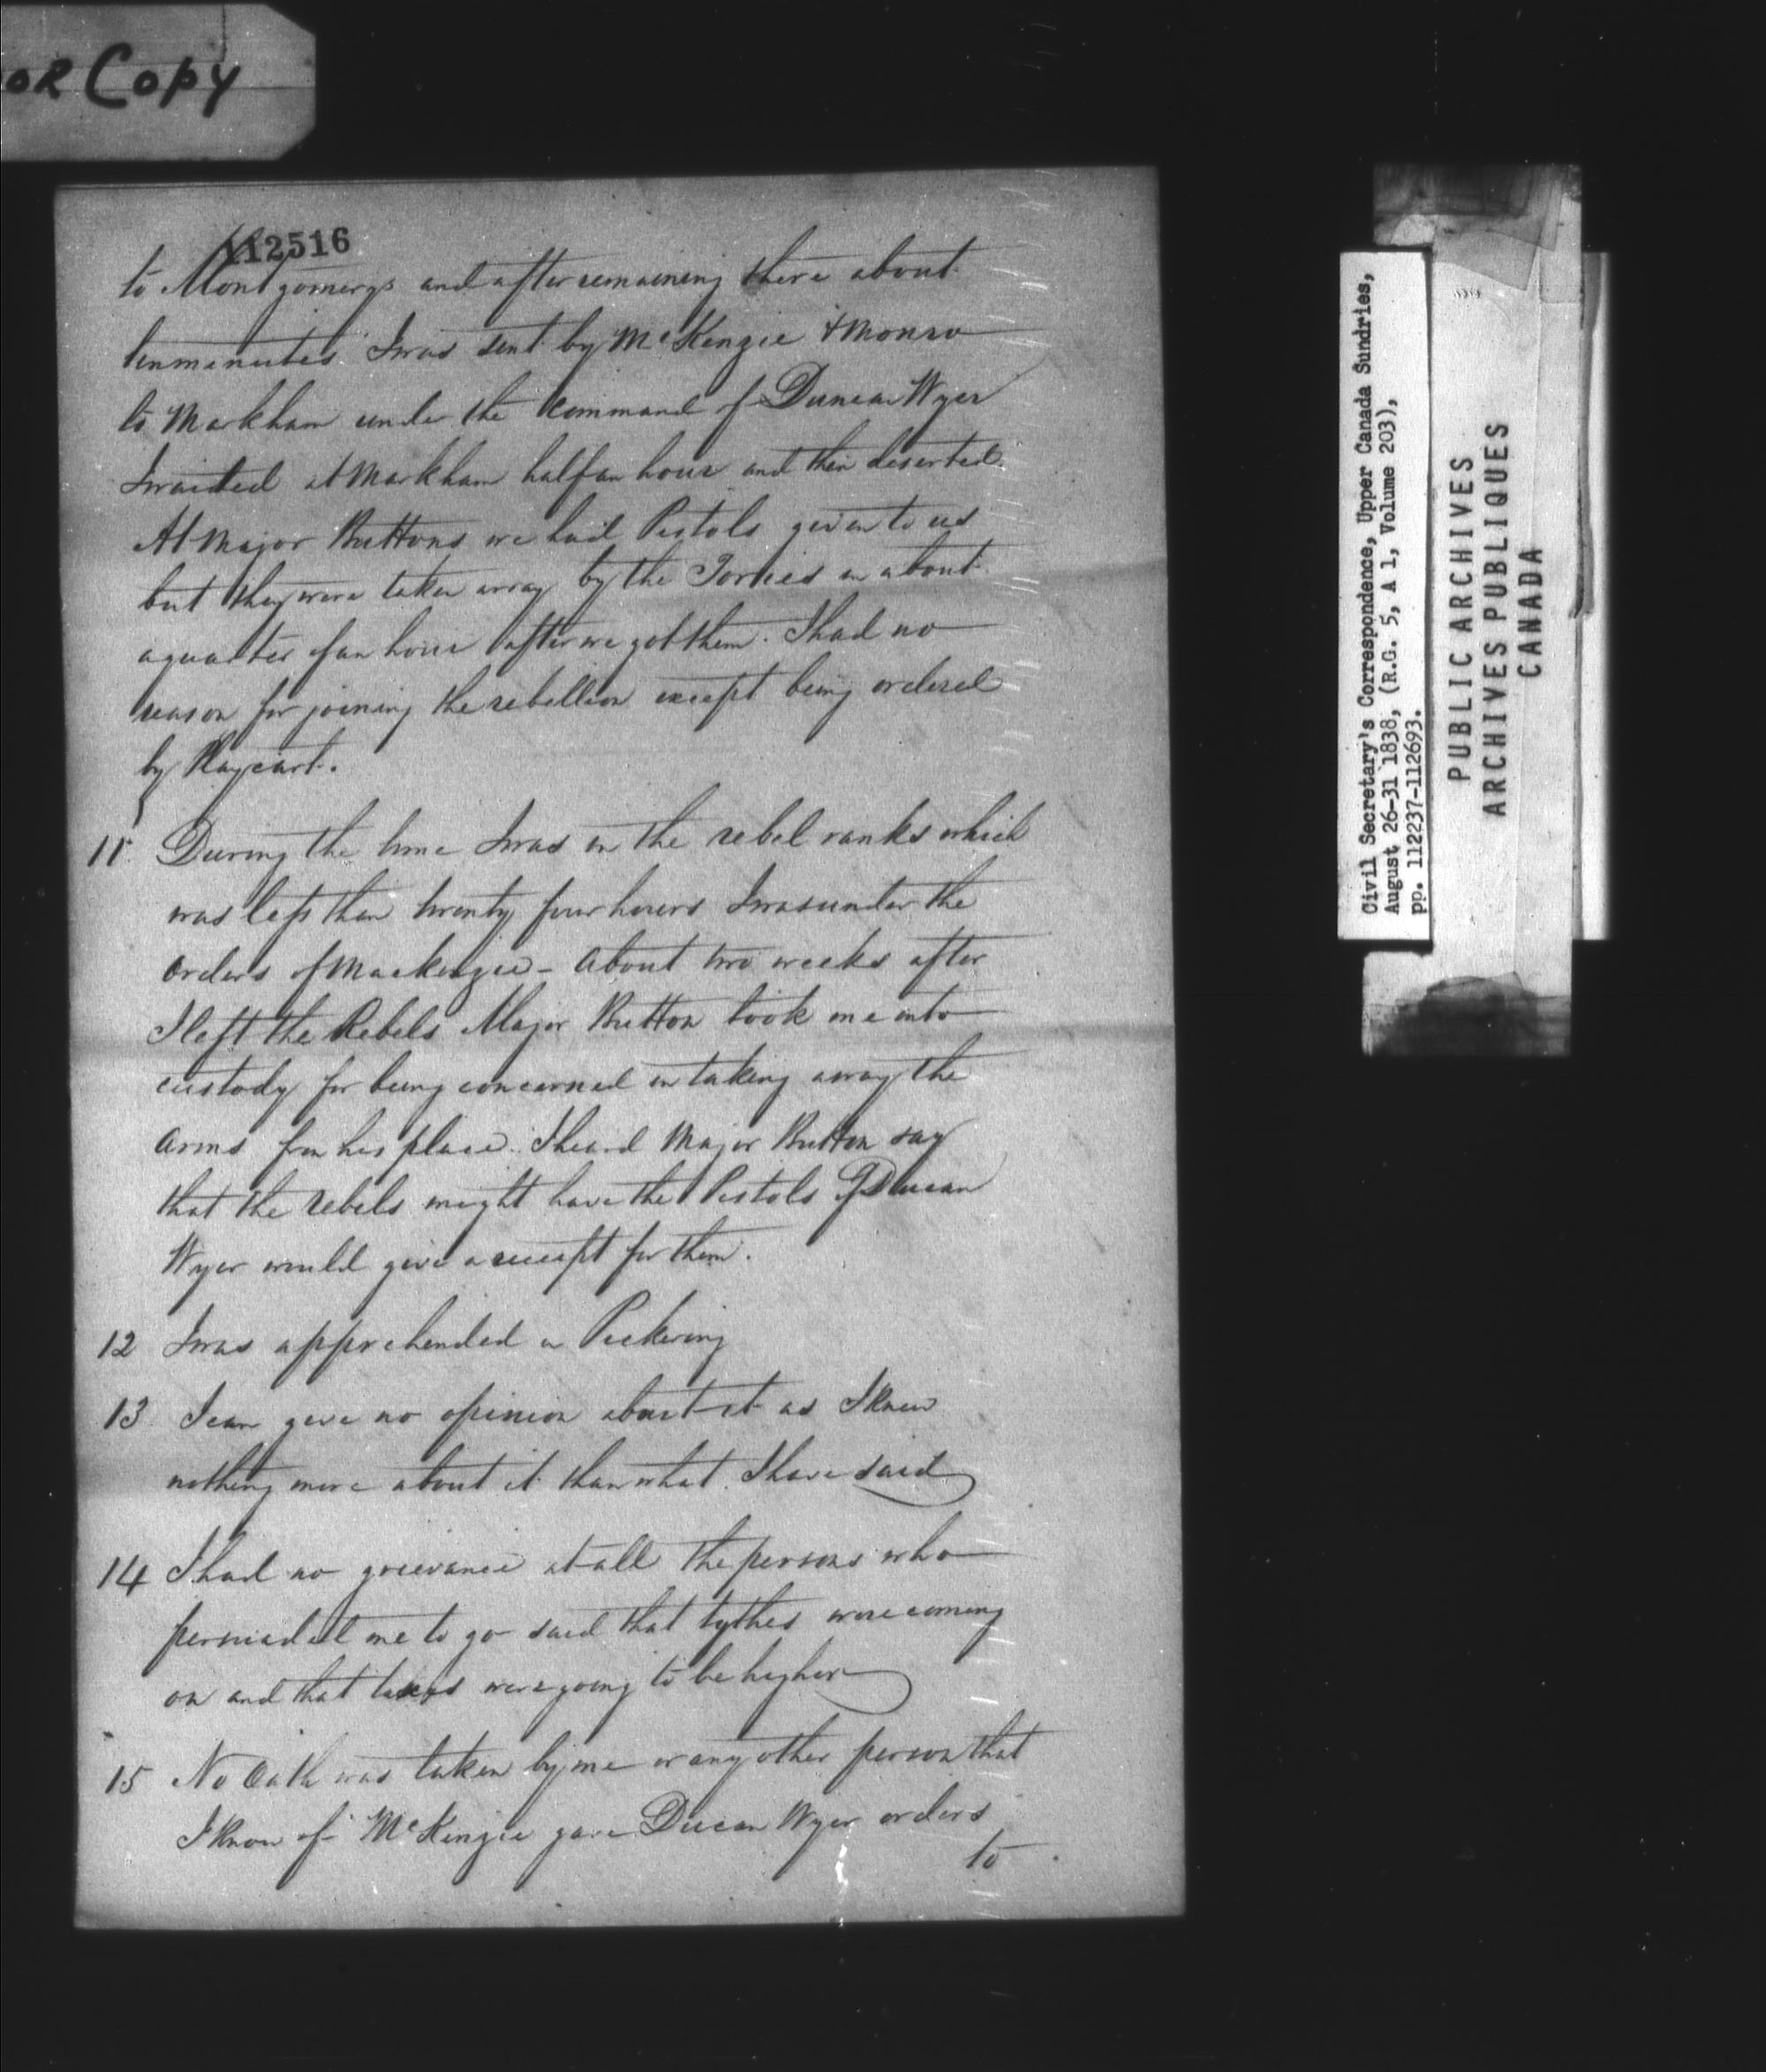 OR COPY
112516
to Montgomerys and after remaining there about
ten minutes I was sent by McKenzie & Monro
to Markham under the command of Duncan Wyer
I waited at Markham half an hour and then deserted.
At Major Buttons we had Pistols given to us
but they were taken away by the Tories in about
a quarter of an hour after we got them. I had no
reason for joining the rebellion except being ordered
by Haycart.
11 During the time I was in the rebel ranks which
was less than twenty four hours I was under the
orders of Mackenzie - About two weeks after
I left the Rebels Major Button took me into
custody for being concerned in taking away the
arms from his place. I heard Major Button say
that the rebels might have the Pistols if Duncan
Wyer would give a receipt for them.
12 I was apprehended in Pickering
13 I can give no opinion about it as I knew
nothing more about it than what I have said
14 I had no grievance at all the persons who
persuaded me to go said that tythes were coming
on and that taxes were going to be higher
15 No Oath was taken by me or any other person that
I know of McKenzie gave Ducan Wyer orders
to
Civil Secretary's Correspondence, Upper Canada Sundries,
August 26-31 1838, (R.G. 5, A 1, Volume 203),
pp. 112237-112693.
PUBLIC ARCHIVES
ARCHIVES PUBLIQUES
CANADA